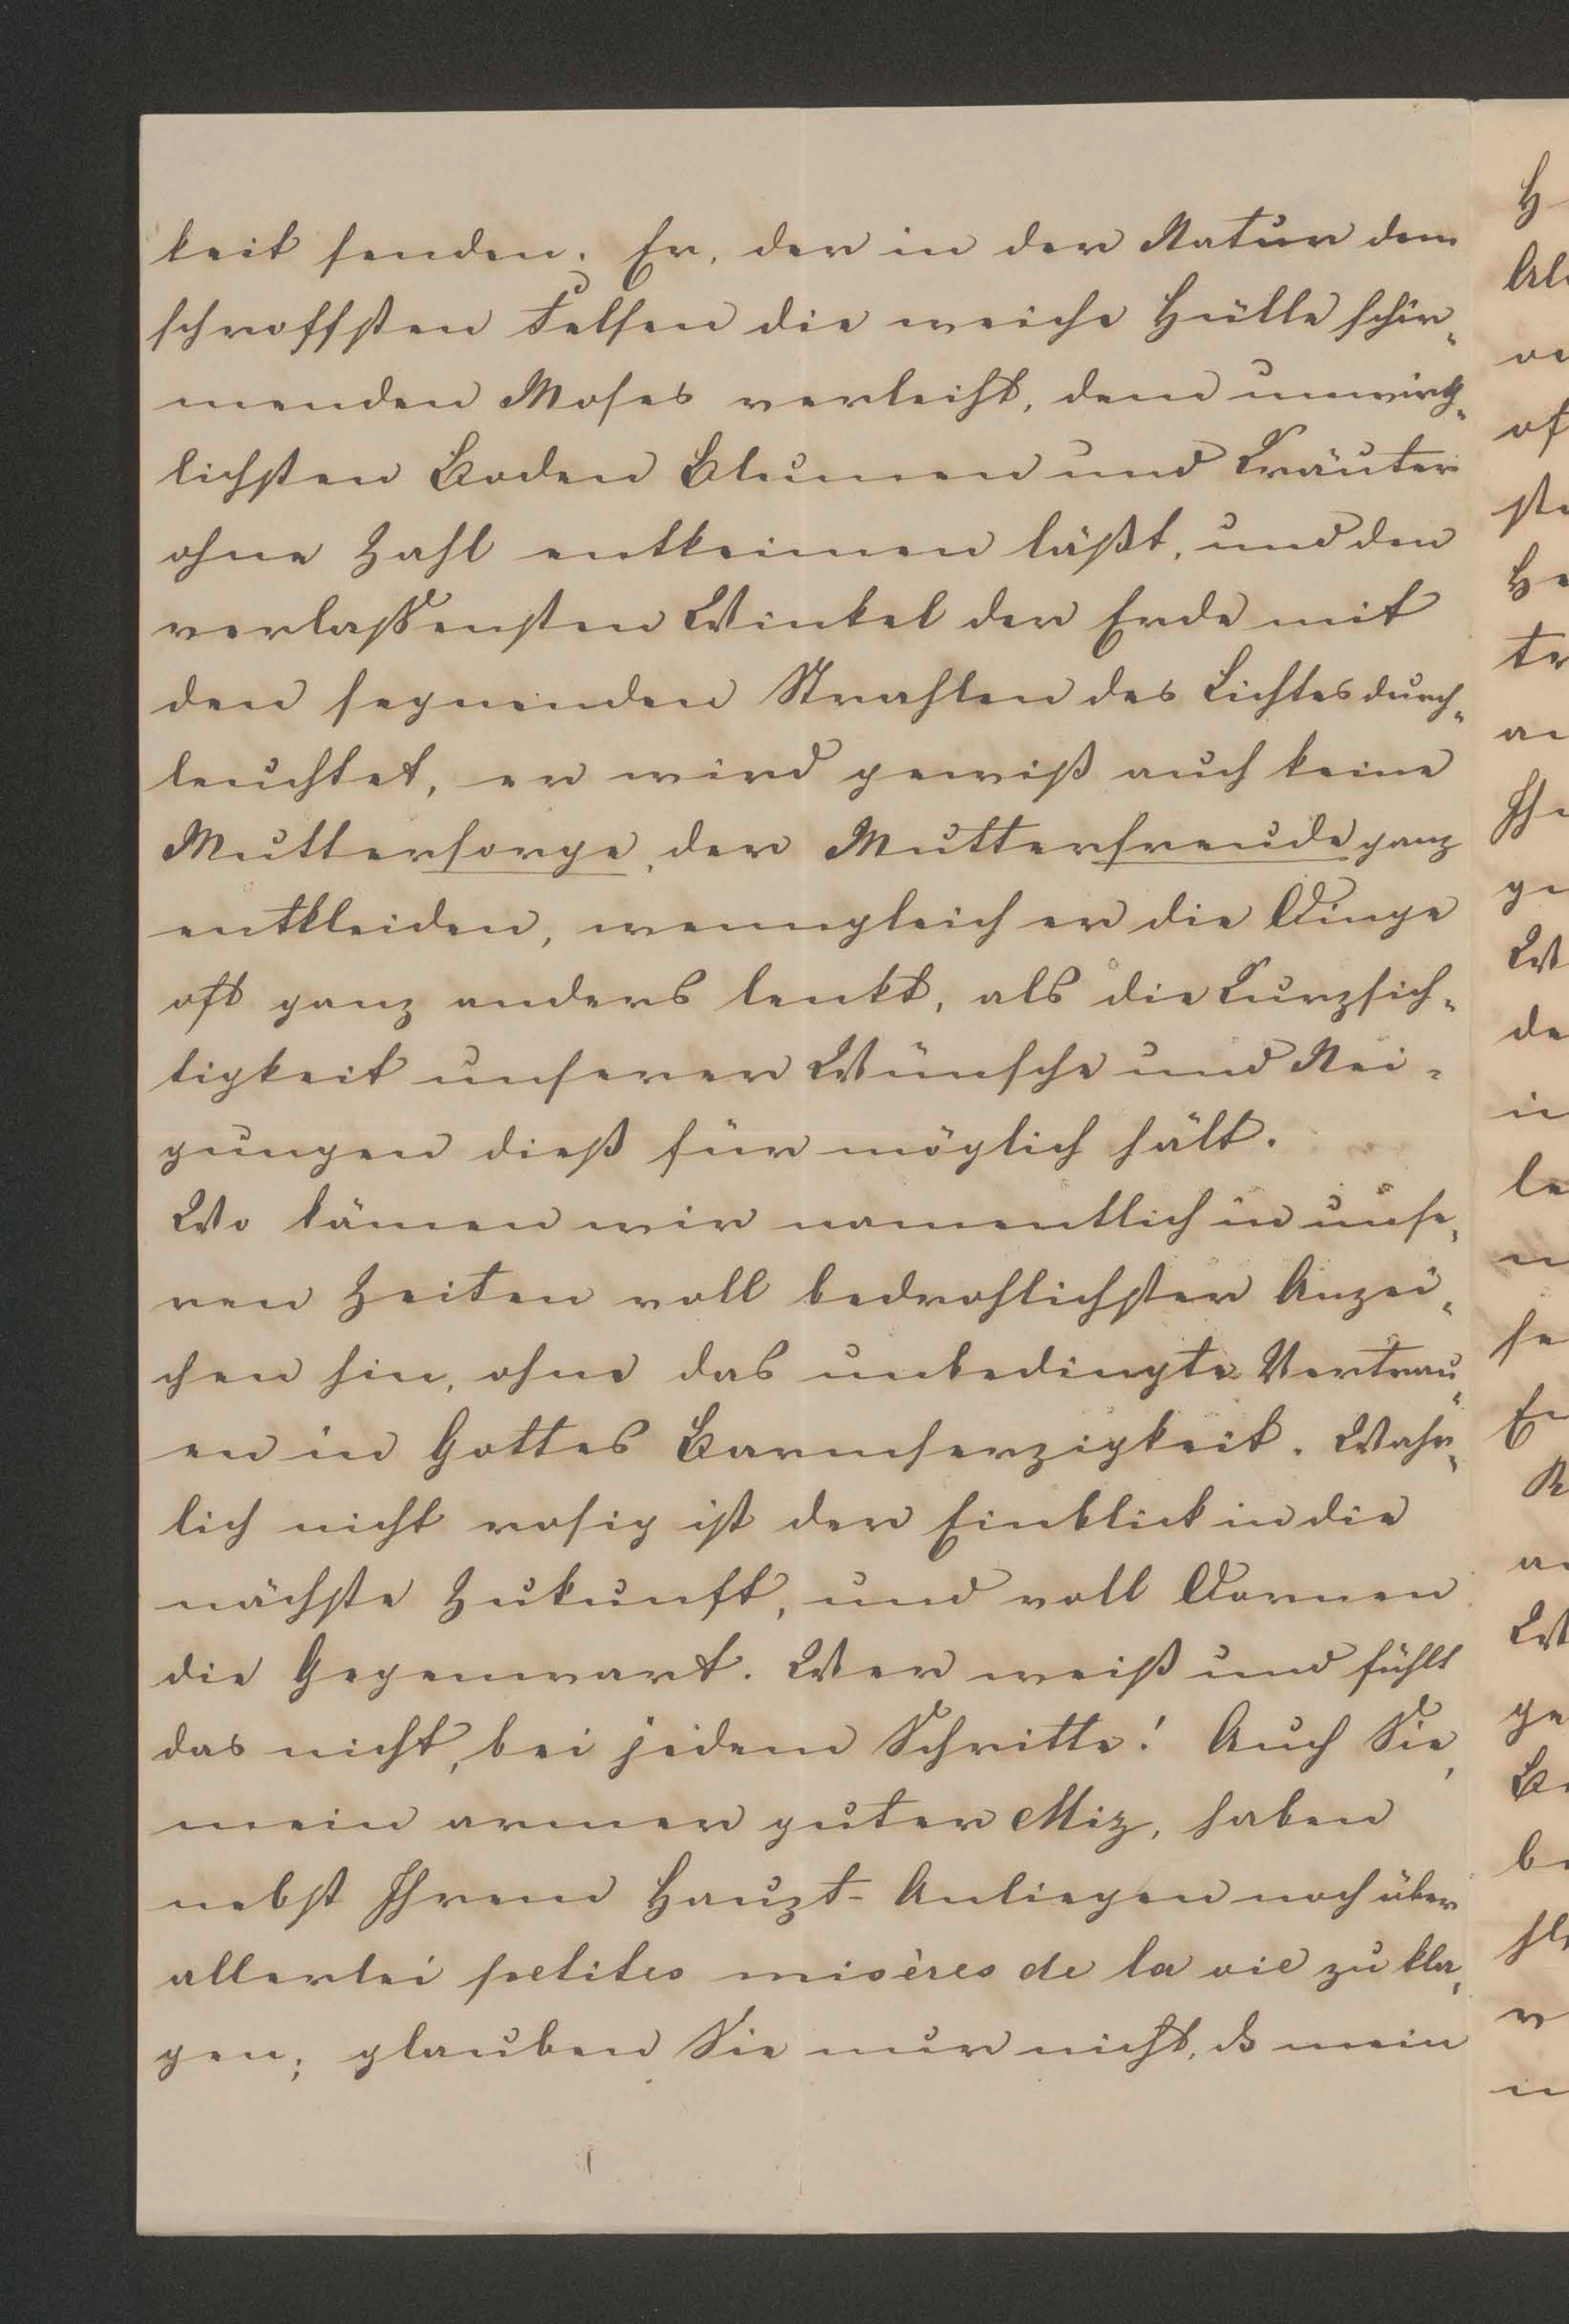 keit senden. Er, der in der Natur dem
schroffsten Felsen die weiche Hülle schir„
menden Moses verleiht, dem unwirth„
lichsten Boden Blumen und Kräuter
ohne Zahl entkeimen läßt, und den
verlaßensten Winkel der Erde mit
den segnenden Strahlen des Lichtes durch„
leuchtet, er wird gewiß auch keine
Muttersorge, der Mutterfreude ganz
entkleiden, wenngleich er die Dinge
oft ganz anders lenkt, als die Kurzsich„
tigkeit unserer Wünsche und Nei„
gungen dieß für möglich hält.
Wo kämen wir namentlich in unse„
ren Zeiten voll bedrohlichster Anzei„
chen hin, ohne das unbedingte Vertrau„
en in Gottes Barmherzigkeit. Wahr„
lich nicht rosig ist der Einblick in die
nächste Zukunft, und voll Dornen
die Gegenwart. Wer weiß und fühlt
das nicht, bei jedem Schritte! Auch Sie,
mein armer guter Miz, haben
nebst Ihrem Haupt-Anliegen noch über
allerlei petites misères de la vie zu kla„
gen; glauben Sie nur nicht, ds mein